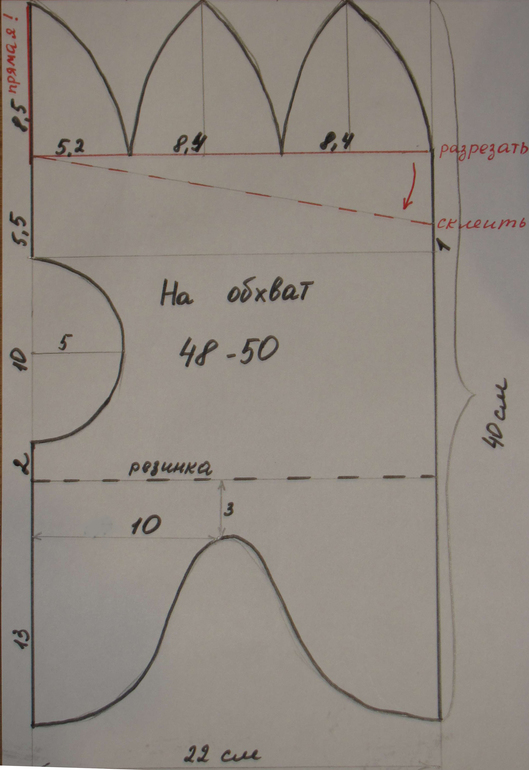 прямая!
8,5
5,2
8,4
8,4
разрезать
склеить
5,5
1
На обхват
48-50
5
10
40 см
2
резинка
3
10
13
22 см